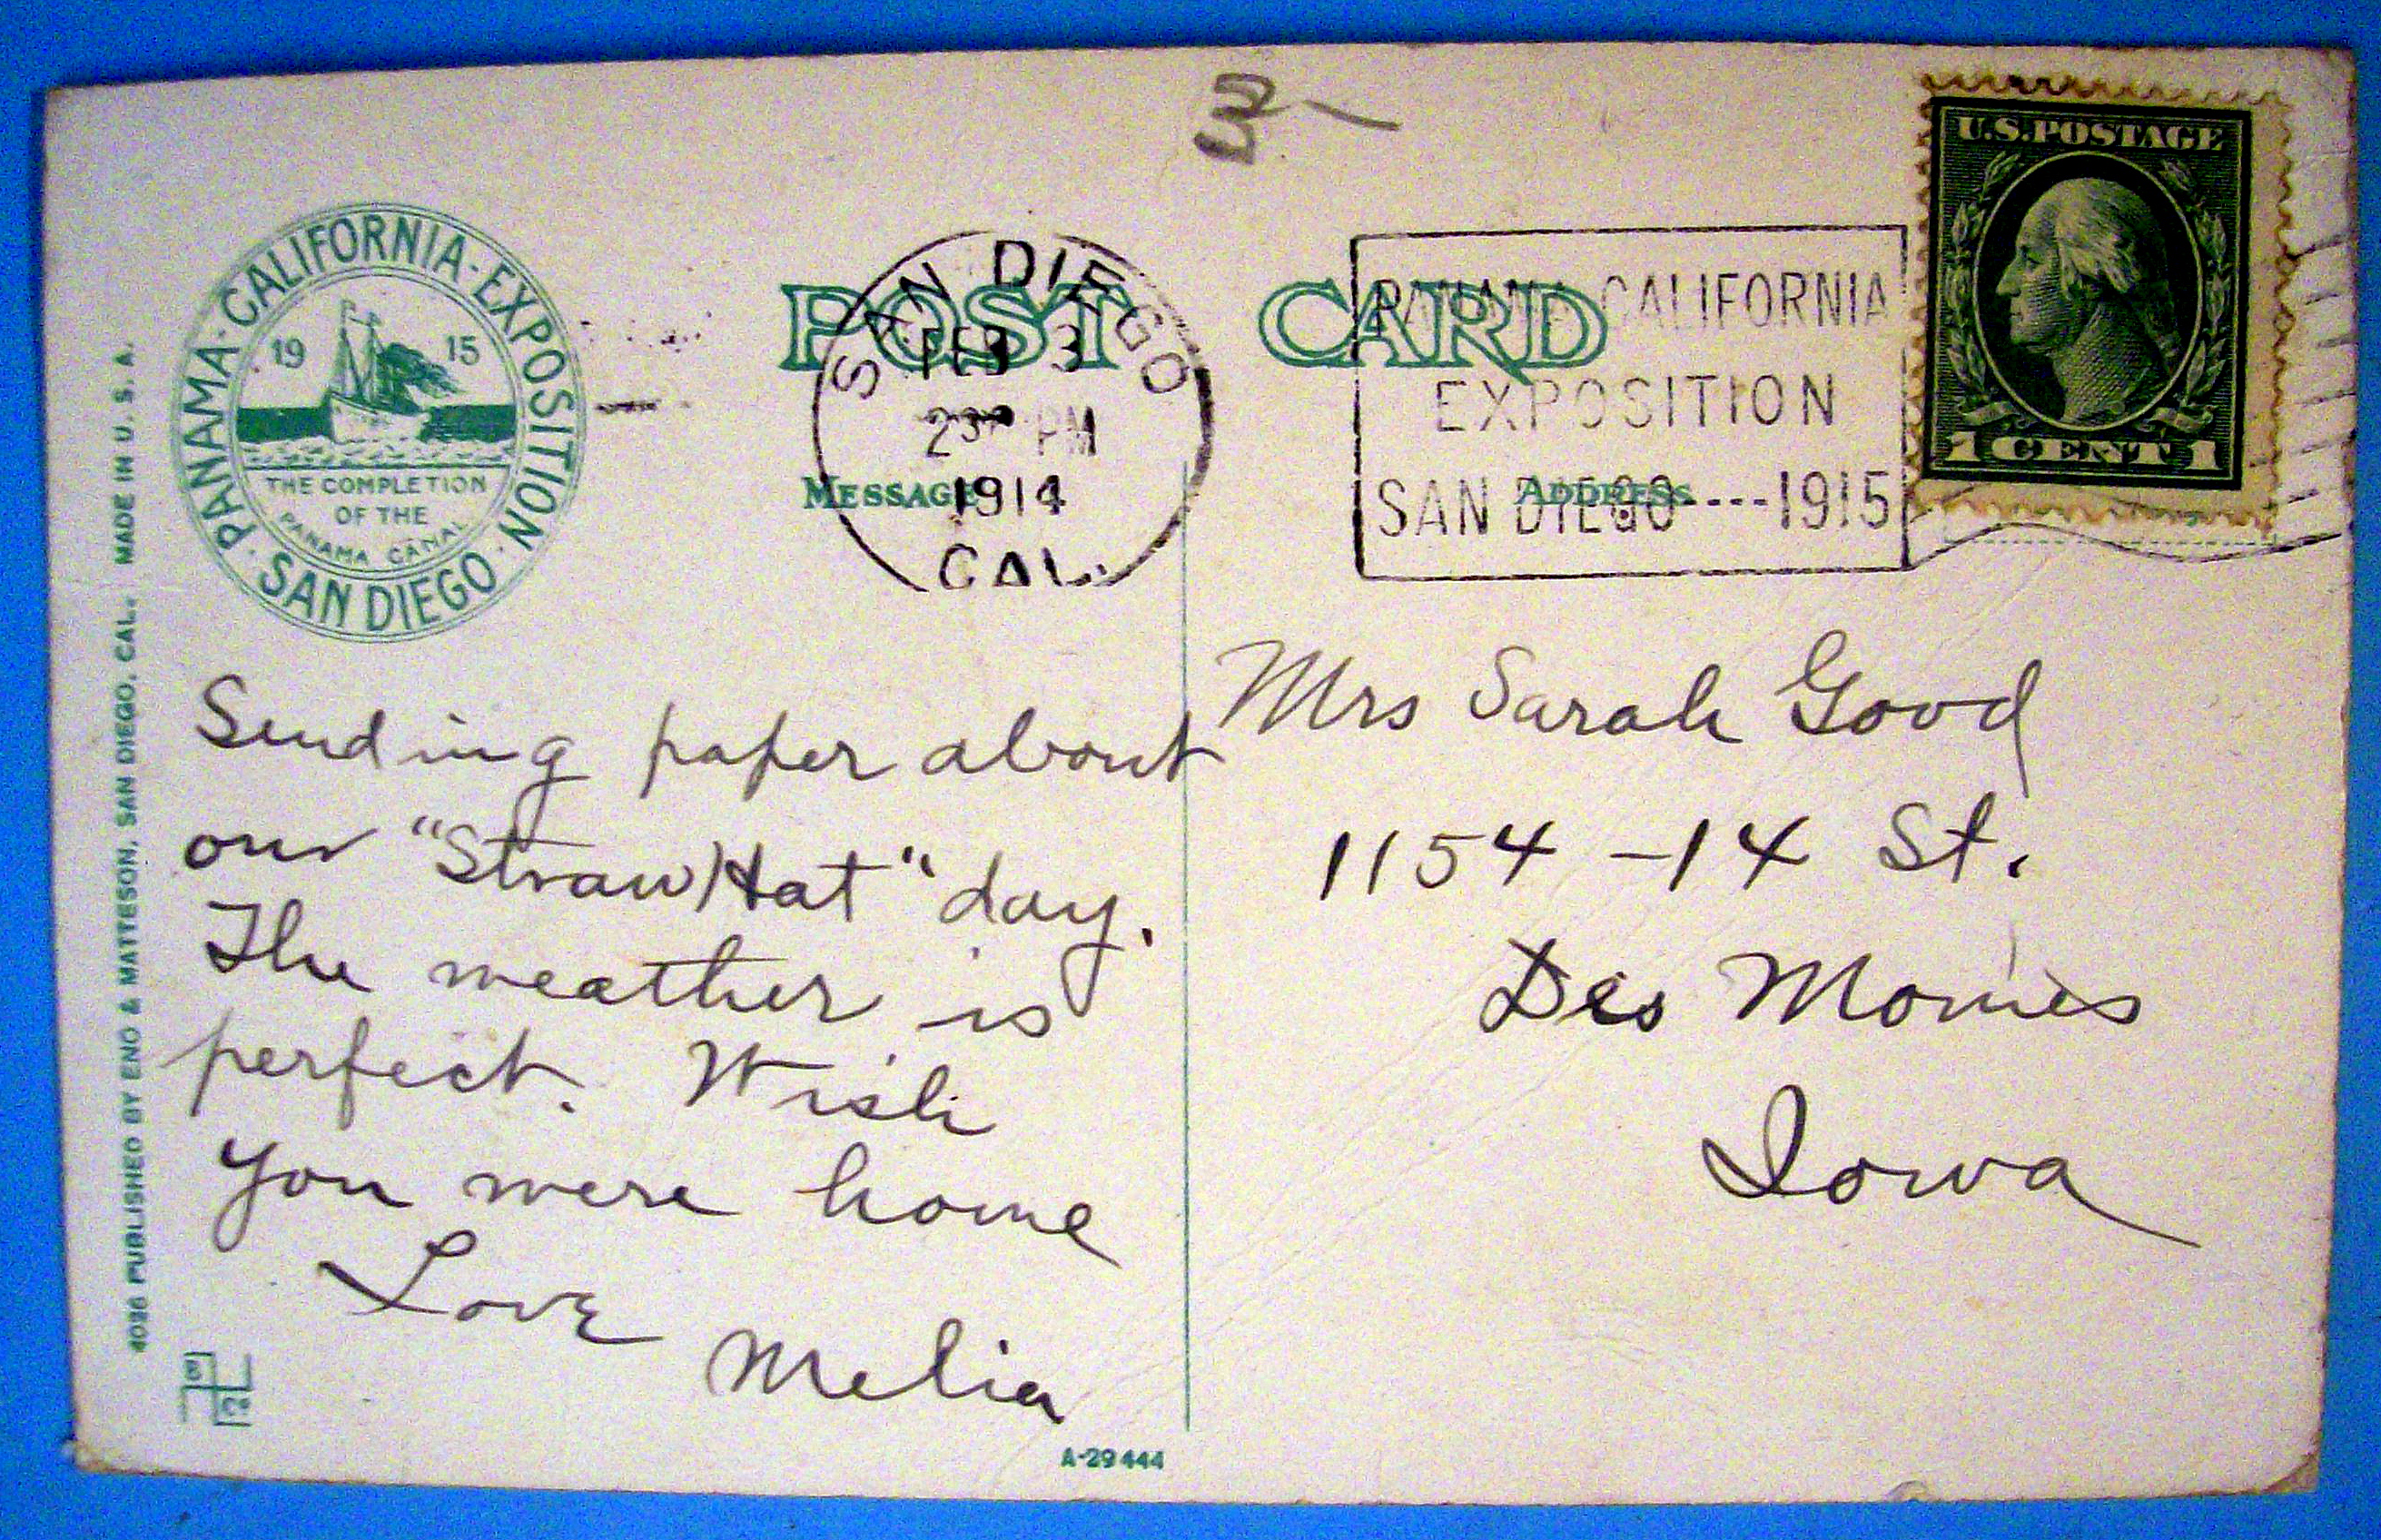 PANAMA·CALIFORNIA·EXPOSITION·
SAN DIEGO·
19 15
THE COMPLETION
OF THE
PANAMA CANAL
POST CARD
SAN DIEGO
FEB 3
PM
1914
CAL.
PANAMA CALIFORNIA
EXPOSITION
SAN DIEGO----1915
U.S.POSTAGE
1 CENT 1
MESSAGE
ADDRESS
Sending paper about
our "Straw Hat" day.
The weather is
perfect. Wish
you were home
Love
Melia
Mrs Sarah Good
1154 - 14 St.
Des Moines
Iowa
4036 PUBLISHED BY ENO & MATTESON, SAN DIEGO, CAL. MADE IN U. S. A.
A-29444